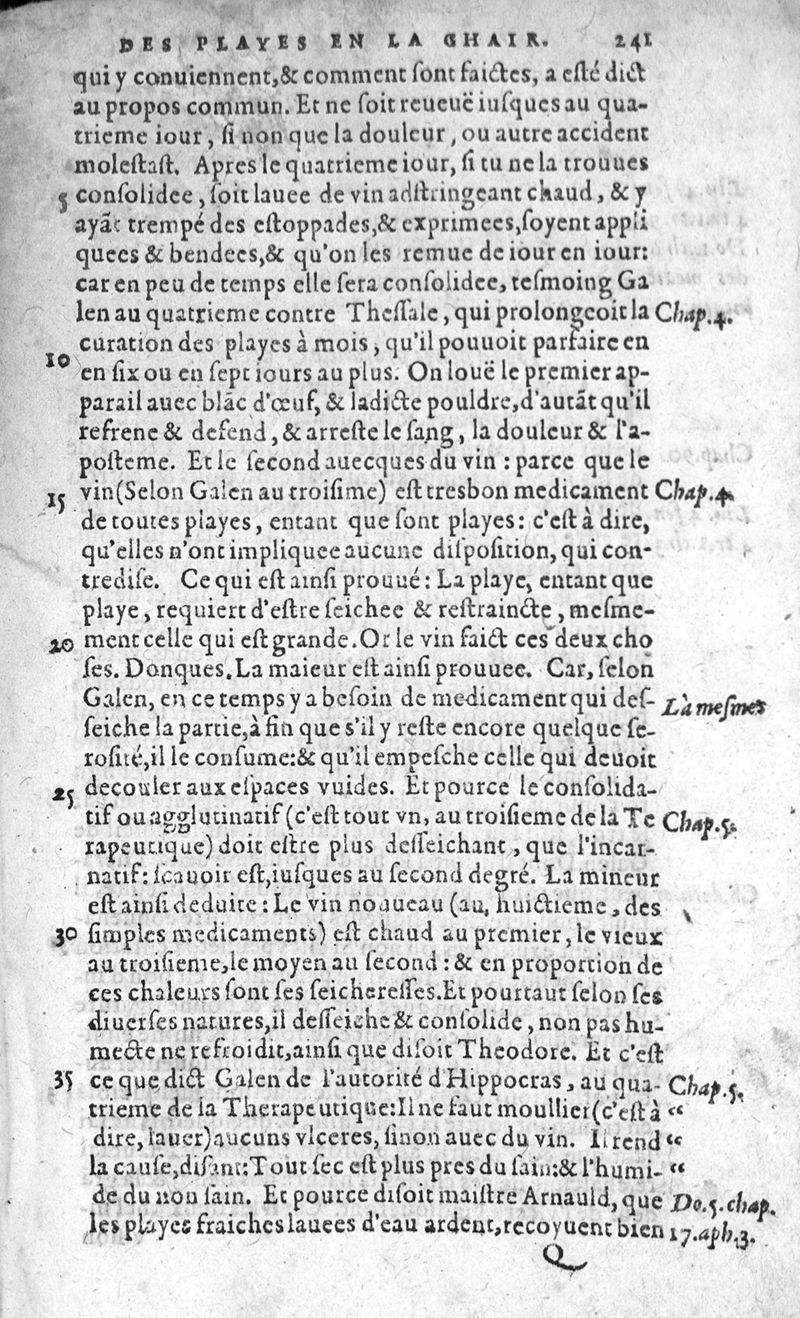 DES PLAYES EN LA CHAIR. 241
qui y conuiennent,& comment ſont faictes, a eſté dict
au propos commun. Et ne ſoit reueuë iuſques au qua-
trieme iour, ſi non que la douleur, ou autre accident
moleſtaſt. Apres le quatrieme iour, ſi tu ne la trouues
5 conſolidee, ſoit lauee de vin adſtringeant chaud, & y
ayãt trempé des eſtoppades,& exprimees,ſoyent appli
quees & bendees,& qu'on les remue de iour en iour:
car en peu de temps elle ſera conſolidee, teſmoing Ga
len au quatrieme contre Theſſale, qui prolongeoit la Chap.4.
curation des playes à mois, qu'il pouuoit parfaire en
10 en ſix ou en ſept iours au plus. On louë le premier ap-
parail auec blãc d'œuf, & ladicte pouldre,d'autãt qu'il
refrene & defend, & arreſte le ſang, la douleur & l'a-
poſteme. Et le ſecond auecques du vin : parce que le
15 vin(Selon Galen au troiſime) eſt tresbon medicament Chap.4.
de toutes playes, entant que ſont playes: c'eſt à dire,
qu'elles n'ont impliquee aucune diſpoſition, qui con-
trediſe. Ce qui eſt ainſi prouué: La playe, entant que
playe, requiert d'eſtre ſeichee & reſtraincte, meſme-
20 ment celle qui eſt grande. Or le vin faict ces deux cho
ſes. Donques. La maieur eſt ainſi prouuee. Car, ſelon
Galen, en ce temps y a beſoin de medicament qui deſ- Là meſmes
ſeiche la partie,à fin que s'il y reſte encore quelque ſe-
roſité,il le conſume:& qu'il empeſche celle qui deuoit
25 decouler aux eſpaces vuides. Et pource le conſolida-
tif ou agglutinatif (c'eſt tout vn, au troiſieme de la Te Chap.5.
rapeutique) doit eſtre plus deſſeichant, que l'incar-
natif: ſcauoir eſt,iuſques au ſecond degré. La mineur
eſt ainſi deduite : Le vin nouueau (au, huictieme, des
30 ſimples medicaments) eſt chaud au premier, le vieux
au troiſieme,le moyen au ſecond : & en proportion de
ces chaleurs ſont ſes ſeichereſſes.Et pourtaut ſelon ſes
diuerſes natures,il deſſeiche & conſolide, non pas hu-
mecte ne refroidit,ainſi que diſoit Theodore. Et c'eſt
35 ce que dict Galen de l'autorité d'Hippocras, au qua- Chap.5.
trieme de la Therapeutique:Il ne faut moullier(c'eſt à “
dire, lauer)aucuns vlceres, ſinon auec du vin. Il rend “
la cauſe,diſant:Tout ſec eſt plus pres du ſain:& l'humi- “
de du non ſain. Et pource diſoit maiſtre Arnauld, que Do.5.chap.
les playes fraiches lauees d'eau ardent,reçoyuent bien 17.aph.3.
Q